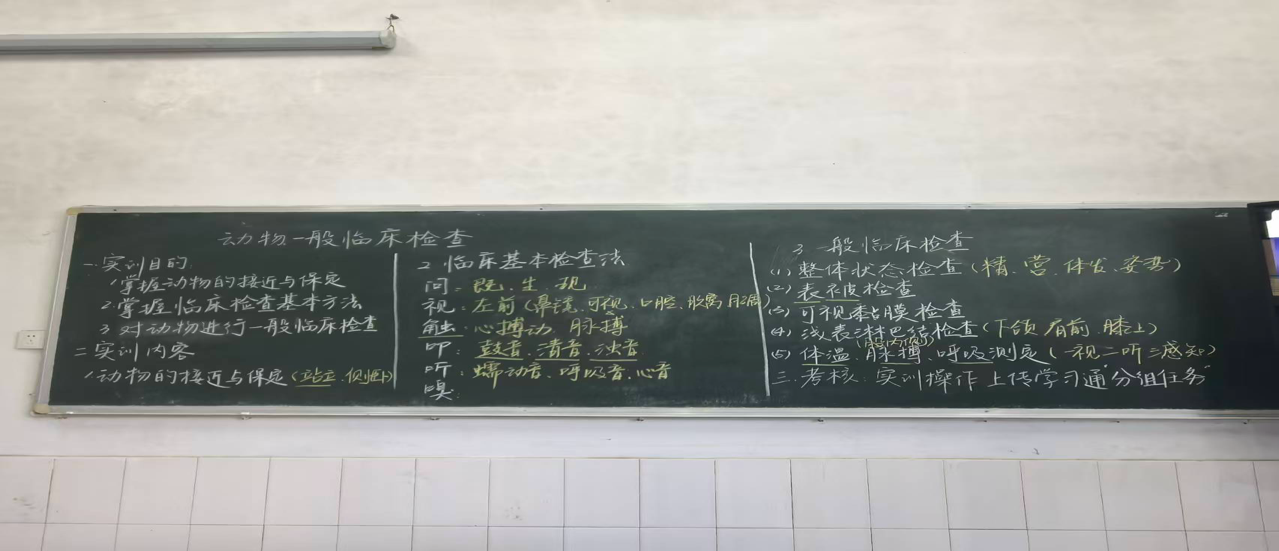 动物一般临床检查
一.实训目的
1掌握动物的接近与保定
2.掌握临床检查基本方法
3.对动物进行一般临床检查
二.实训内容
1.动物的接近与保定(站立.侧卧)
2.临床基本检查法
问:既.生.现
视:左前(鼻镜.可视.口腔.胸离
触:心搏动.脉搏
叩:鼓音.清音.浊音
听:蠕动音.呼吸音.心音
嗅:
3.一般临床检查
(1)整体状态检查(精.营.体发.姿势)
(2)表被检查
(3)可视黏膜检查
(4)浅表淋巴结检查(下颌.肩前.膝上)
(股内侧)
(5)体温.脉搏.呼吸测定(一视二听三感知)
三.考核:实训操作上传学习通"分组任务"